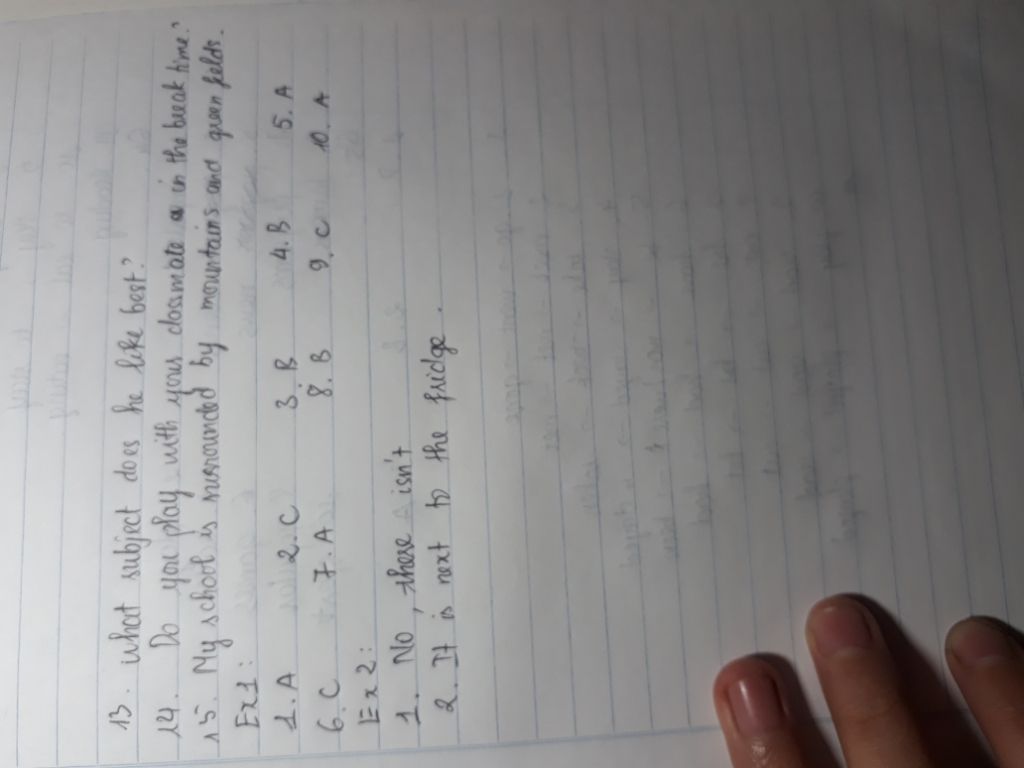 13. What subject does he like best?
14. Do you play with your classmate in the break time?
15. My school is surrounded by mountains and green fields.
Ex1:
1. A 2. C 3. B 4. B 5. A
6. C 7. A 8. B 9. C 10. A
Ex2:
1. No, there isn't
2. It is next to the fridge.